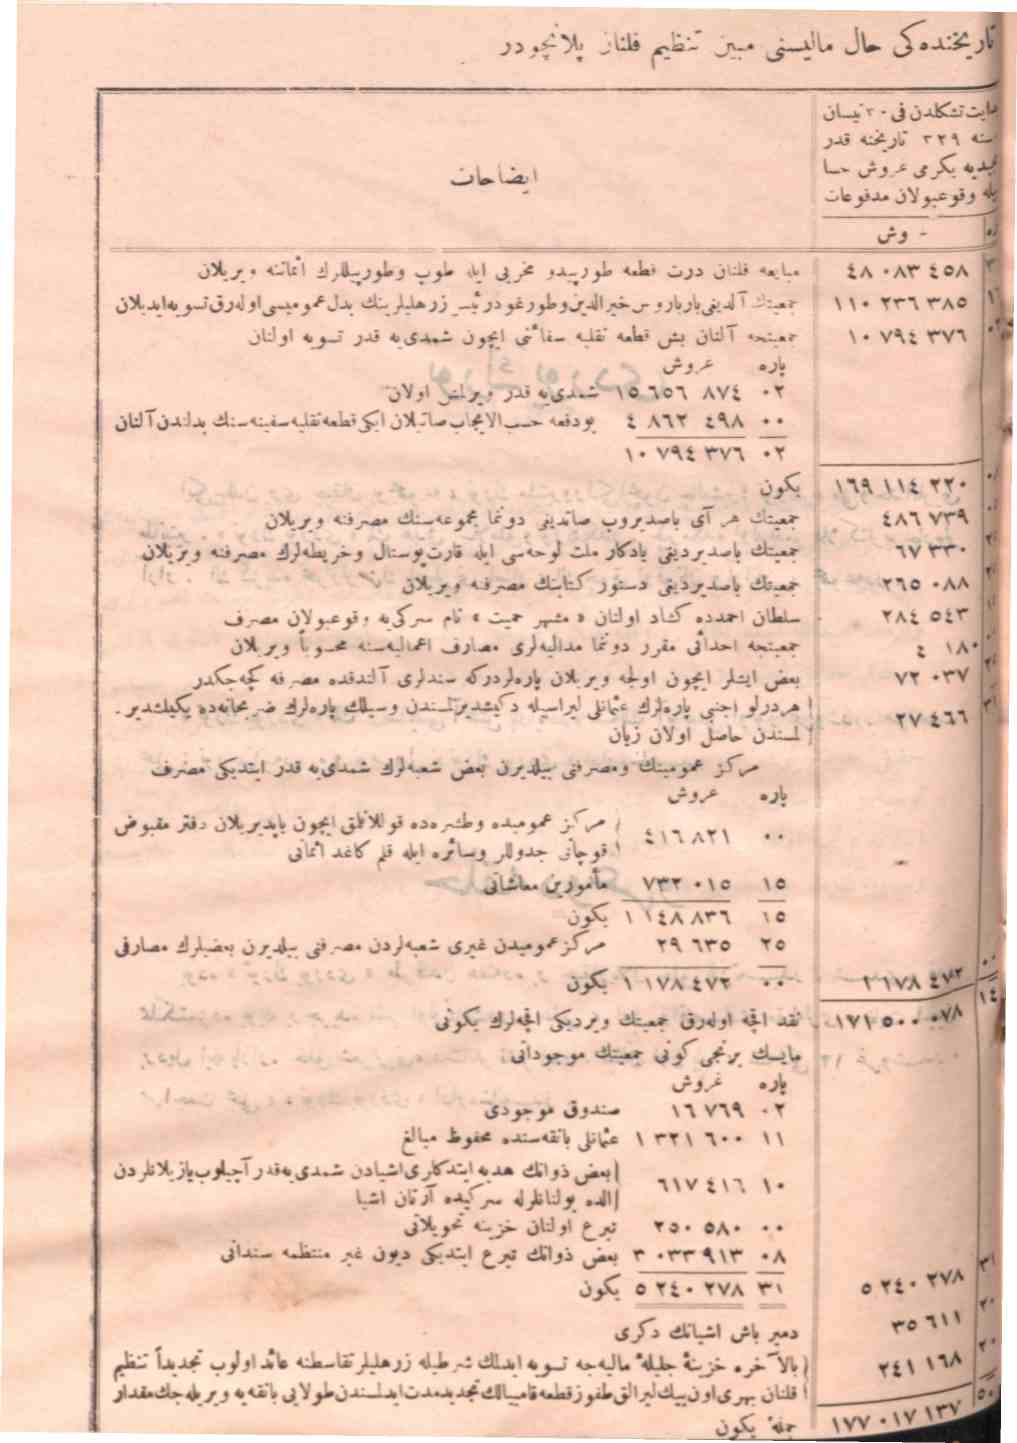 تاريخنده‌كى حال ماليسنى مبين تنظيم قلنان پلانچودر
بدايت تشكلدن فى ٣٠ نيسان
سنه ٣٢٩ تاريخنه قدر
مجيديه يكرمى غروش حسا
بيله وقوعبولان مدفوعات
ايضاحات
وش
٤٨ ٠٨٣ ٤٥٨ مبايعه قلنان درت قطعه طورپيدو مخربى ايله طوپ وطورپيللرك اثماننه ويريلان
١١٠ ٢٣٦ ٣٨٥ جمعيتك آلديغى بارباروس خيرالدين وطورغود رئيس زرهليلرينك بدل عموميسى اوله‌رق تسويه ايديلان
١٠ ٧٩٤ ٣٧٦ جمعيتجه آلنان بش قطعه نقليه سفائنى ايچون شمدى‌يه قدر تسويه اولنان
پاره غروش
٠٢ ١٥ ٦٥٦ ٨٧٤ شمدى‌يه قدر ويرلمش اولان
٠٠ ٤ ٨٦٢ ٤٩٨ بودفعه حسب الايجاب صاتيلان ايكى قطعه نقليه سفينه‌سنك بدلندن آلنان
٠٢ ١٠ ٧٩٤ ٣٧٦
١٦٩ ١١٤ ٢٢٠ يكون
٤٨٦ ٧٣٩ جمعيتك هر آى باصديروب صاتديغى دوننما مجموعه‌سنك مصرفنه ويريلان
٦٧ ٣٣٠ جمعيتك باصديرديغى يادكار ملت لوحه‌سى ايله قارت‌پوستال وخريطه‌لرك مصرفنه ويريلان
٢٦٥ ٠٨٨ جمعيتك باصديرديغى دستور كتابنك مصرفنه ويريلان
٢٨٤ ٥٤٣ سلطان احمدده كشاد اولنان « مشهر حميت » نام سركى‌يه وقوعبولان مصرف
٤ ١٨٠ جمعيتجه احداثى مقرر دوننما مداليه‌لرى مصارف اعماليه‌سنه محسوباً ويريلان
٧٢ ٠٣٧ بعض ايشلر ايچون اولجه ويريلان پاره‌لردركه سندلرى آلندقده مصرفه كچه‌جكدر
٢٧ ٤٦٦ هردرلو اجنبى پاره‌لرك عثمانلى ليراسيله دكيشديرلمسندن وسيليك پاره‌لرك ضربخانه‌ده يكيلشدير-
لمسندن حاصل اولان زيان
مركز عموميتك ومصرفنى بيلديرن بعض شعبه‌لرك شمدى‌يه قدر ايتديكى مصرف
پاره غروش
مركز عموميده وطشره‌ده قوللانلمق ايچون ياپديريلان دفتر مقبوض
٠٠ ٤١٦ ٨٢١
قوچانى جدوللر وسائره ايله قلم كاغد اثمانى
١٥ ٧٣٢ ٠١٥ مأمورين معاشاتى
١٥ ١ ١٤٨ ٨٣٦ يكون
٢٥ ٢٩ ٦٣٥ مركز عموميدن غيرى شعبه‌لردن مصرفنى بيلديرن بعضيلرك مصارفى
١ ١٧٨ ٤٧٢ ٠٠ ١ ١٧٨ ٤٧٢ يكون
١٧١ ٥٠٠ ٠٧٨ نقد اقچه اوله‌رق جمعيتك ويرديكى اقچه‌لرك يكونى
مايسك برنجى كونى جمعيتك موجوداتى
پاره غروش
٠٢ ١٦ ٧٦٩ صندوق موجودى
١١ ١ ٣٢١ ٦٠٠ عثمانلى بانقه‌سنده محفوظ مبالغ
بعض ذواتك هديه ايتدكلرى اشيادن شمدى‌يه‌قدر آچيلوب يازيلانلردن
١٠ ٦١٧ ٤١٦
الده بولنانلرله سركيده آرتان اشيا
٠٠ ٢٥٠ ٥٨٠ تبرع اولنان خزينه تحويلاتى
٠٨ ٣ ٠٣٣ ٩١٣ بعض ذواتك تبرع ايتديكى ديون غير منتظمه سنداتى
٥ ٢٤٠ ٢٧٨ ٣١ ٥ ٢٤٠ ٢٧٨ يكون
٣٥ ٦١١ دمير باش اشيانك دكرى
٢٤١ ١٦٨ بالآخره خزينهٔ جليلهٔ ماليه‌جه تسويه ايدلمك شرطيله زرهليلر تقاسيطنه عائد اولوب تجديداً تنظيم
قلنان بهرى اون بيك ليرالق طقوز قطعه قامبيالك تجديد مدت ايدلمسندن طولايى بانقه‌يه ويريله‌جك مقدار
١٧٧ ٠١٧ ١٣٧ جملهٔ يكون